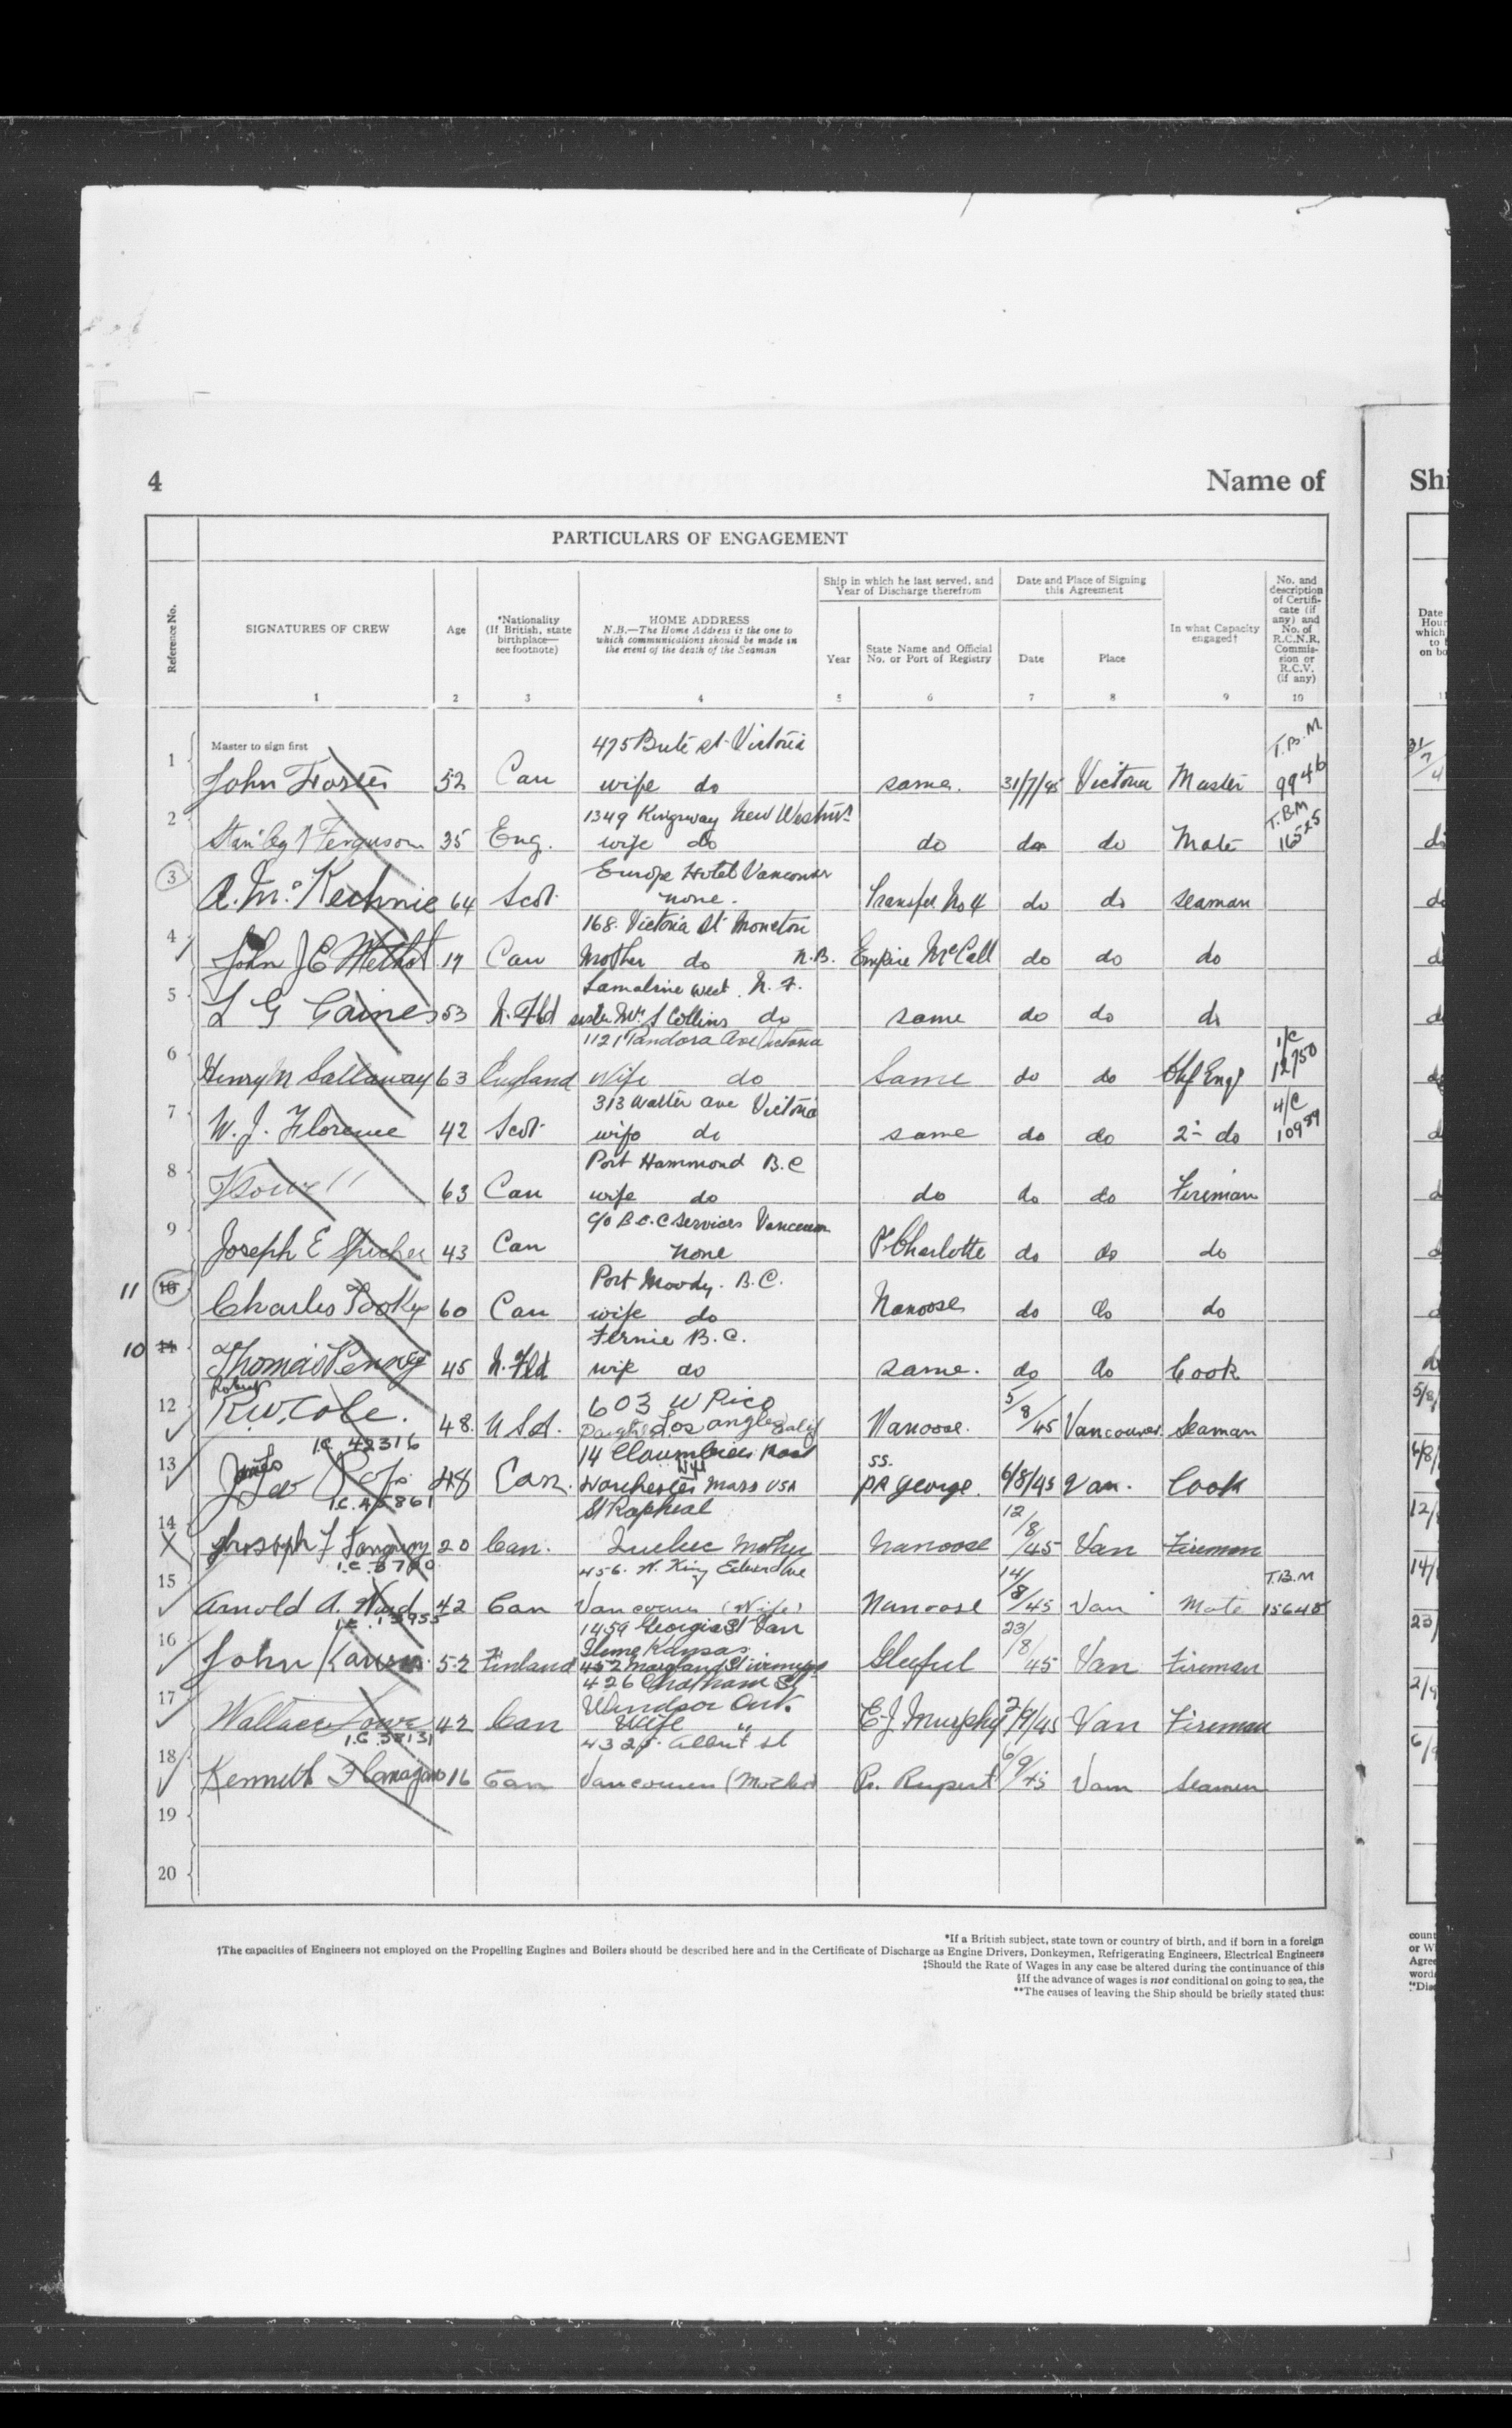 4 Name of Shi
PARTICULARS OF ENGAGEMENT
Reference No.
SIGNATURES OF CREW
Age
*Nationality (If British, state birthplace— see footnote)
HOME ADDRESS
N.B.—The Home Address is the one to which communications should be made in the event of the death of the Seaman
Ship in which he last served, and Year of Discharge therefrom
Year
State Name and Official No. or Port of Registry
Date and Place of Signing this Agreement
Date
Place
In what Capacity engaged†
No. and description of Certificate (if any) and No. of R.C.N.R. Commission or R.C.V. (if any)
1 2 3 4 5 6 7 8 9 10
Master to sign first
475 Bute st Victoria T.B.M
1 John Foster 52 Can wife do same. 31/7/45 Victoria Master 9946
1349 Kingsway New Westmr. T.B.M
2 Stanley Ferguson 35 Eng. wife do do do do Mate 16525
Europe Hotel Vancouver
3 A. Mc Kechnie 64 Scot. none. Transfer No 4 do do seaman
168 Victoria St Moncton
4 John J E Methot 17 Can Mother do N.B. Empire McCall do do do
Lamaline West N. F.
5 L G Caines 53 N. Fld sister Mrs S Collins do same do do do
1121 Pandora Ave Victoria 1/C
6 Henry N Sallaway 63 England Wife do Same do do Chf Engr 12750
313 Walter Ave Victoria 4/C
7 W. J. Florence 42 Scot. wife do same do do 2- do 10989
Port Hammond B.C
8 63 Can wife do do do do Fireman
C/o B.C.C Services Vancouver
9 Joseph E 43 Can none P Charlotte do do do
Port Moody. B.C.
11 10 Charles Tooky 60 Can wife do Nanoose do do do
Fernie B.C.
10 11 Thomas Penney 45 N. Fld wife do same. do do Cook
Robert 603 W Pico 5/
12 R.W. Cole. 48. U S A. Los Angles Calif Nanoose. 8/45 Vancouver. Seaman
I.C. 42316
14 Road SS.
13 48 Can. Worchester Mass USA PR George. 6/8/45 Van. Cook
I.C. A5861
St Rapheal 12/
14 X F 20 Can. Quebec Mother Nanoose 8/45 Van Fireman
456. W. King Edward Ave 14/ T.B.M
15 Arnold A. Ward 42 Can Vancouver (Wife) Nanoose 8/45 Van Mate 15640
1459 Georgia St Van 23/
16 John 52 Finland 452 Gleeful 8/45 Van Fireman
426 Chatham St
Windsor Ont.
17 Wallace Lowe 42 Can Wife " E-J Murphy 2/9/45 Van Fireman
I.C. 58131
Albert st
18 Kenneth Flanagan 16 Can Vancouver (Mother) Pr. Rupert 6/9/45 Van Seaman
19
20
*If a British subject, state town or country of birth, and if born in a foreign
†The capacities of Engineers not employed on the Propelling Engines and Boilers should be described here and in the Certificate of Discharge as Engine Drivers, Donkeymen, Refrigerating Engineers, Electrical Engineers
‡Should the Rate of Wages in any case be altered during the continuance of this
§If the advance of wages is not conditional on going to sea, the
**The causes of leaving the Ship should be briefly stated thus: